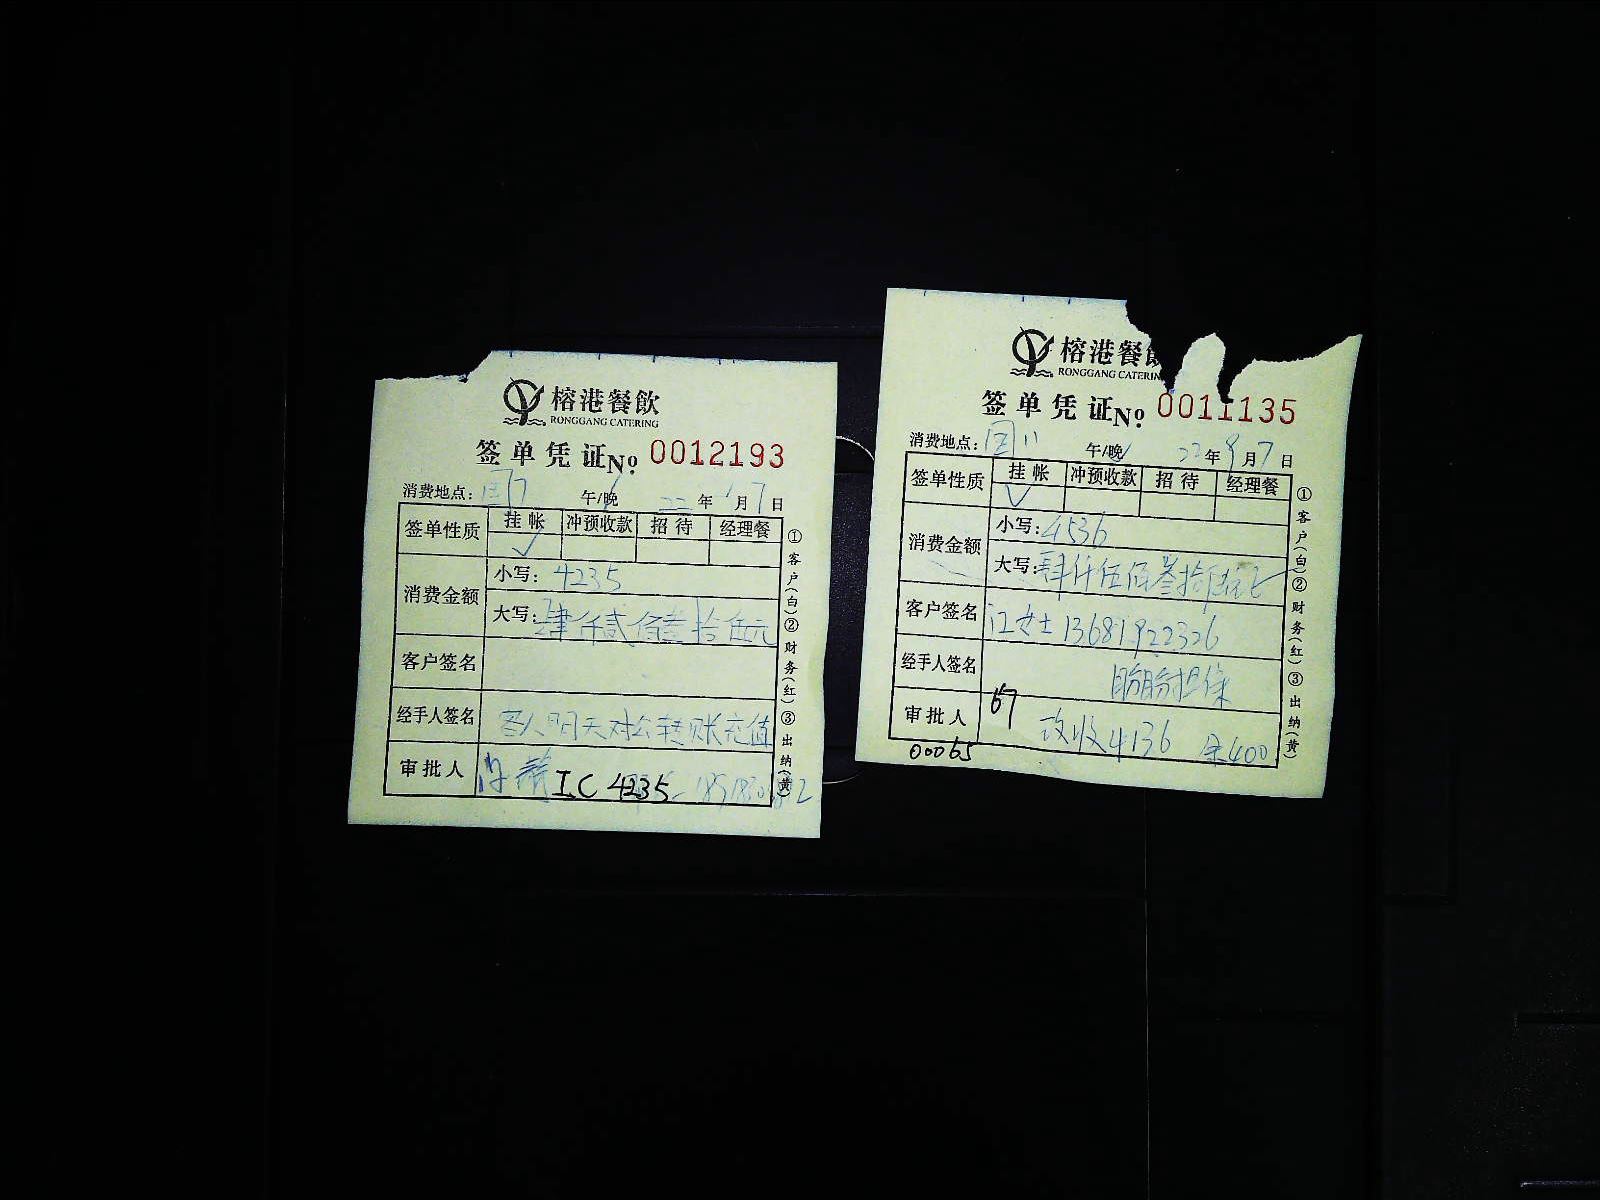 榕港餐飲
RONGGANG CATERING
签单凭证 No. 0012193
消费地点: 午/晚 22 年 月 7 日
签单性质 挂帐 冲预收款 招待 经理餐
✓
消费金额 小写: 4235
大写: 肆仟贰佰叁拾伍元
客户签名
经手人签名 客人明天对公转账充值
审批人 IC 4235
①客户(白)②财务(红)③出纳(黄)
榕港餐飲
RONGGANG CATERIN
签单凭证 No. 0011135
消费地点: 午/晚 22 年 9 月 7 日
签单性质 挂帐 冲预收款 招待 经理餐
✓
消费金额 小写: 4536
大写: 肆仟伍佰叁拾
客户签名 江女士 13681922326
经手人签名 盼盼担保
审批人 改收4136 余400
00065
①客户(白)②财务(红)③出纳(黄)